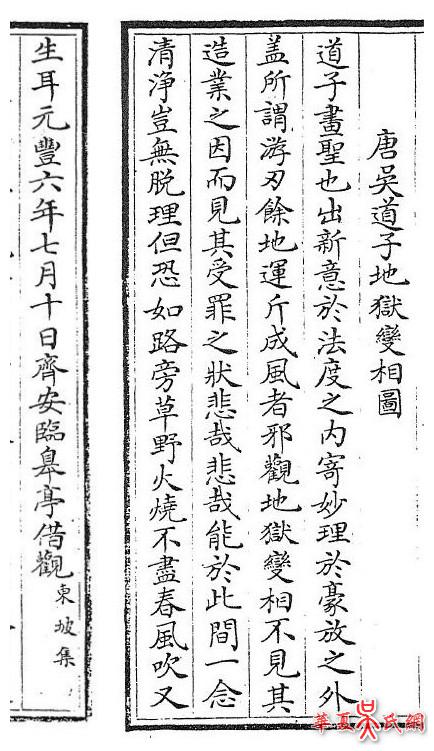 唐吳道子地獄變相圖
道子畫聖也出新意於法度之内寄妙理於豪放之外
盖所謂游刃餘地運斤成風者邪觀地獄變相不見其
造業之因而見其受罪之狀悲哉悲哉能於此間一念
清淨豈無脱理但恐如路旁草野火燒不盡春風吹又
生耳元豐六年七月十日齊安臨臯亭借觀東坡集
華夏吳氏網